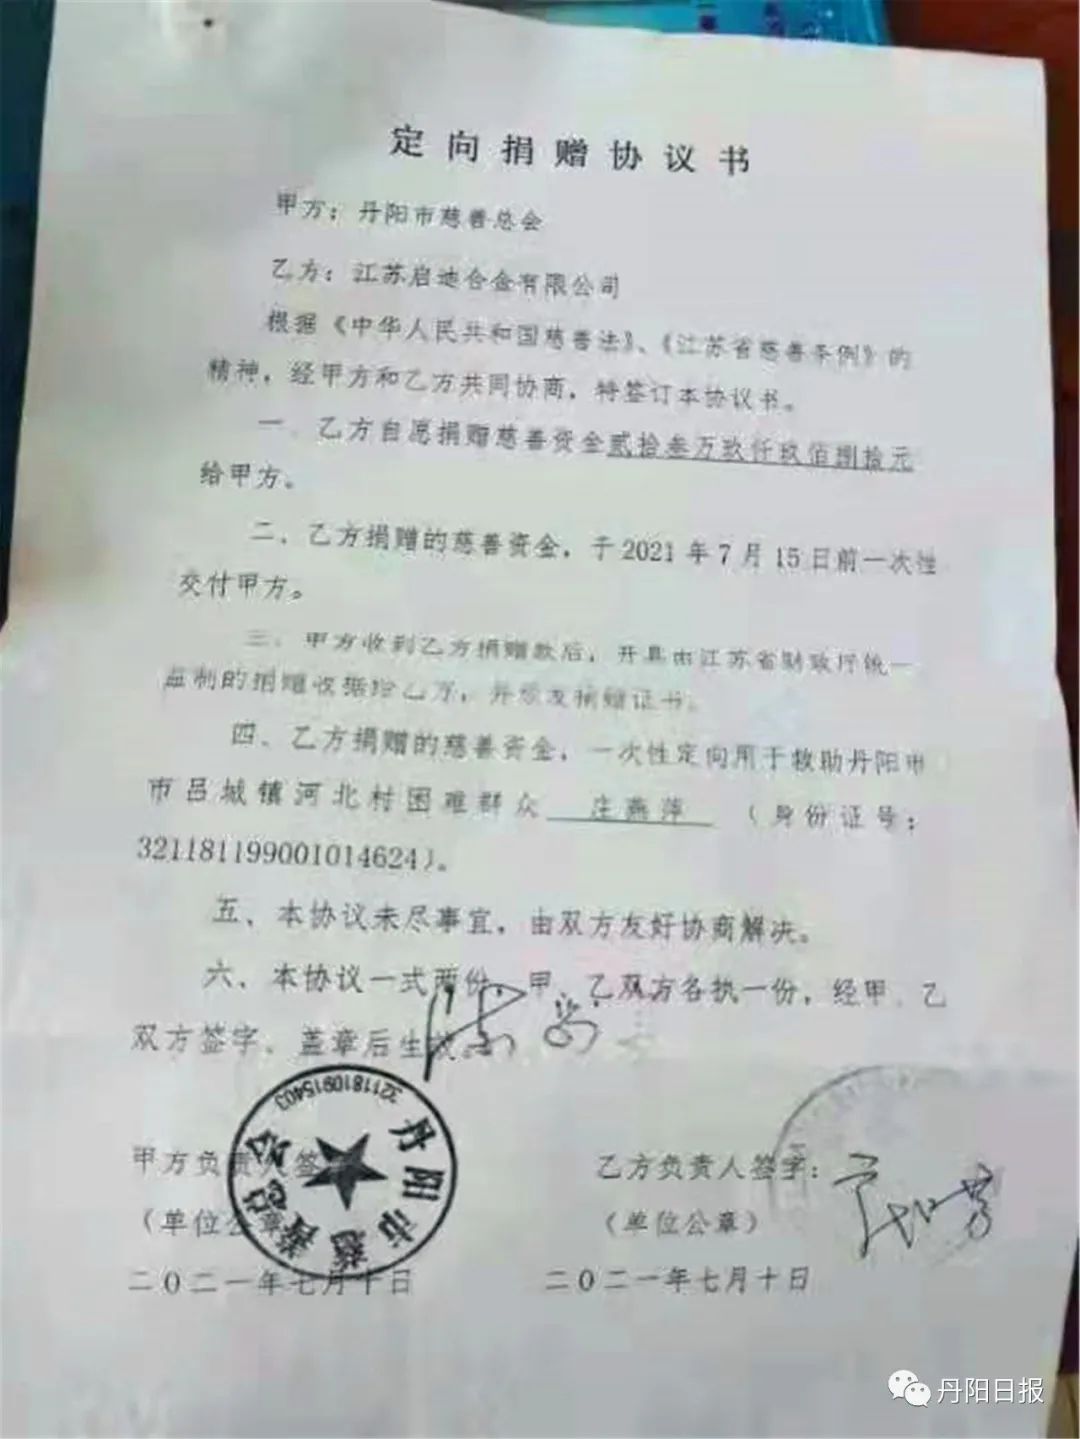 定向捐赠协议书
甲方：丹阳市慈善总会
乙方：江苏启迪合金有限公司
根据《中华人民共和国慈善法》、《江苏省慈善条例》的
精神，经甲方和乙方共同协商，特签订本协议书。
一、乙方自愿捐赠慈善资金贰拾叁万玖仟玖佰捌拾元
给甲方。
二、乙方捐赠的慈善资金，于2021年7月15日前一次性
交付甲方。
三、甲方收到乙方捐赠款后，开具由江苏省财政厅统一
监制的捐赠收据给乙方，并颁发捐赠证书。
四、乙方捐赠的慈善资金，一次性定向用于救助丹阳市
市吕城镇河北村困难群众 庄燕萍 （身份证号：
321181199001014624）。
五、本协议未尽事宜，由双方友好协商解决。
六、本协议一式两份，甲、乙双方各执一份，经甲、乙
双方签字、盖章后生效。
甲方负责人签
乙方负责人签字：
（单位公章
（单位公章）
二〇二一年七月十日
二〇二一年七月十日
丹阳市慈善总会
3211810915403
丹阳日报